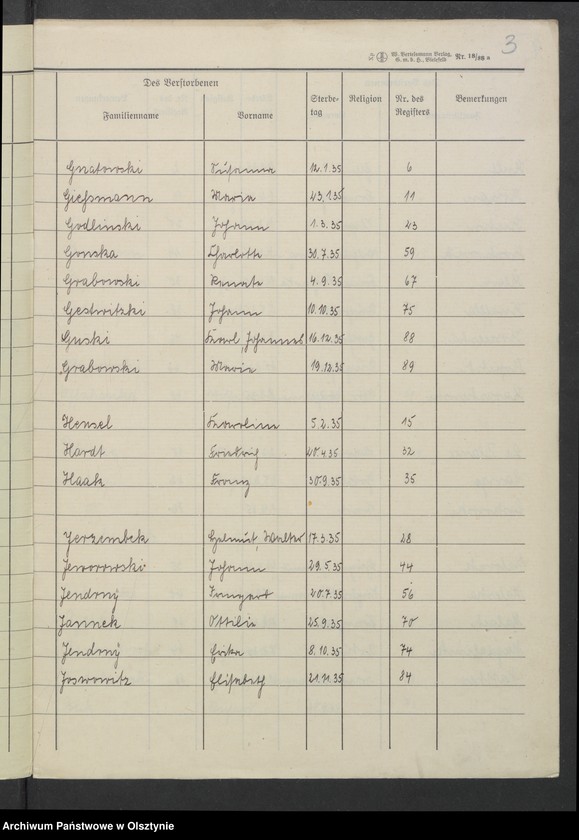 3
W. Bertelsmann Verlag, G. m. b. H., Bielefeld Nr. 18/
Des Verstorbenen
Familienname Vorname Sterbe-tag Religion Nr. des Registers Bemerkungen
Gnatowski Susanna 12.1.35 6
Gießmann Maria 23.1.35 11
Godlinski Johann 1.3.35 23
Gonska Charlotte 30.7.35 59
Grabowski Renate 4.9.35 67
Gestwitzki Johann 10.10.35 75
Guski Karl, Johannes 16.12.35 88
Grabowski Maria 19.12.35 89
Hensel Karoline 5.2.35 15
Hardt Friedrich 20.4.35 32
Haak Franz 30.9.35 35
Jerzembek Helmut, Walter 17.3.35 28
Jeworowski Johann 29.5.35 44
Jendrny 20.7.35 56
Jannek Ottilie 25.9.35 70
Jendrny Erika 8.10.35 74
Joswowitz Elisabeth 21.11.35 84
Archiwum Państwowe w Olsztynie